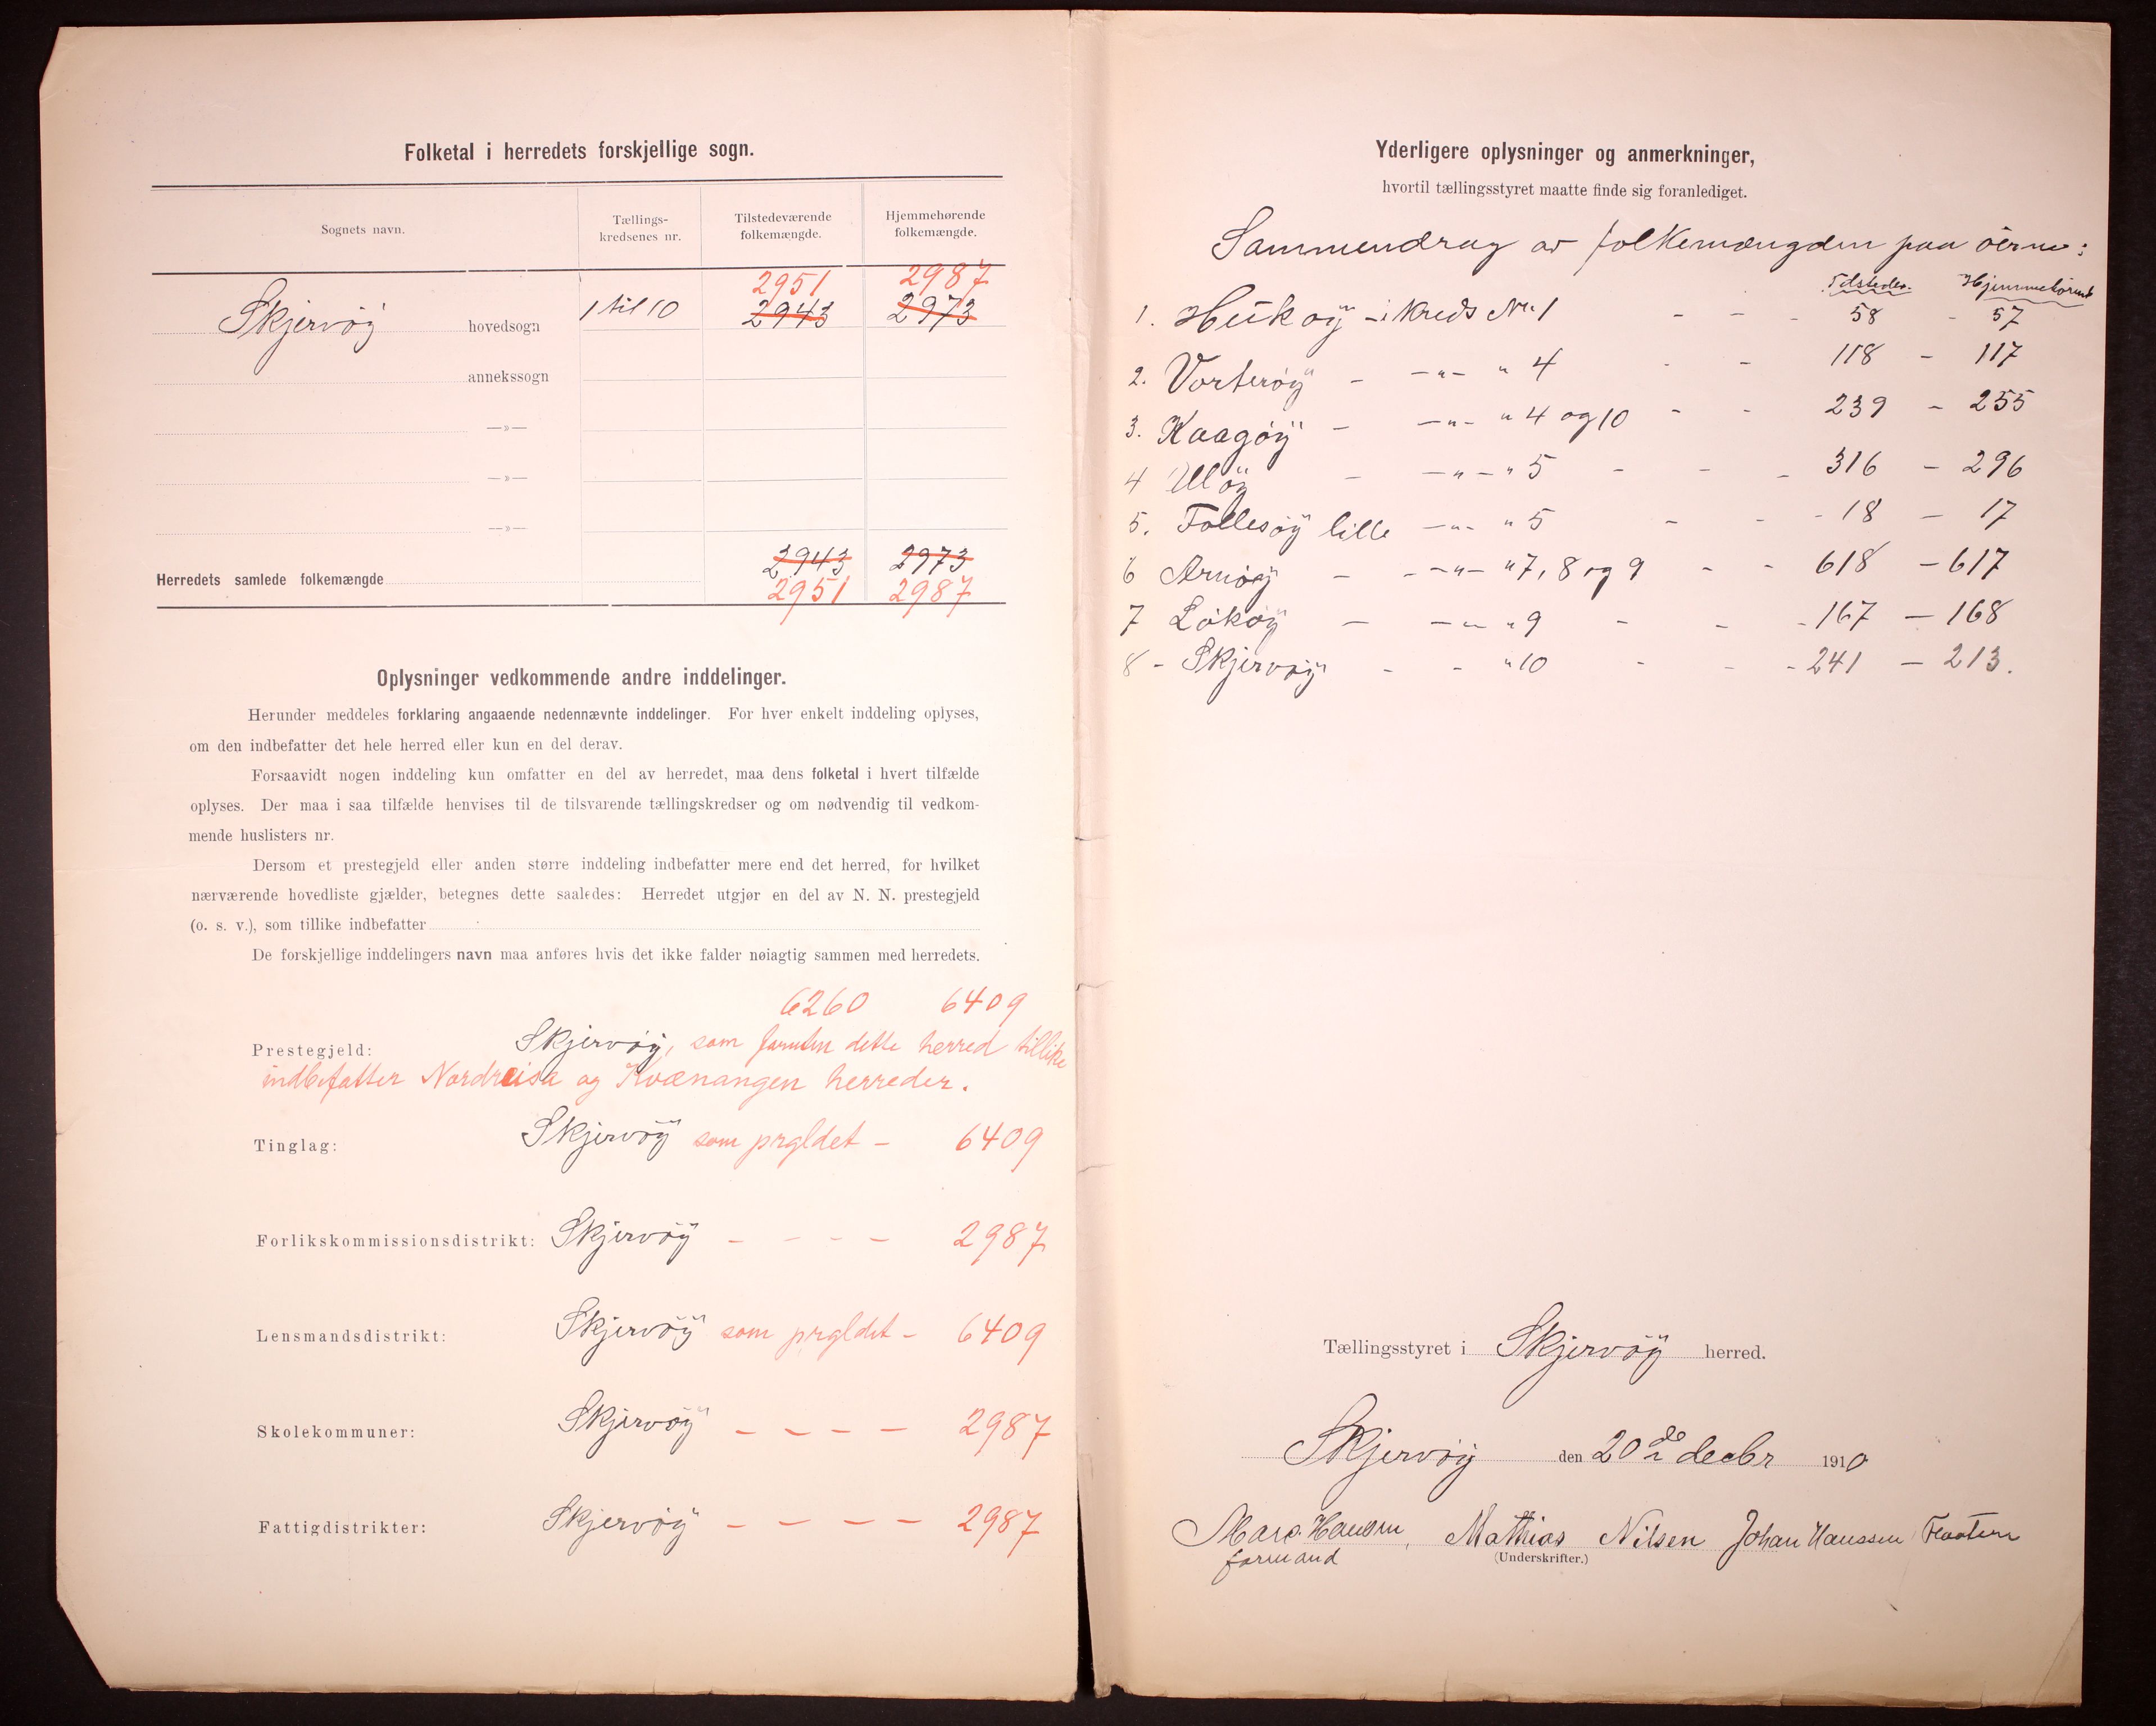 Folketal i herredets forskjellige sogn.
Sognets navn.
Tællings-
kredsenes nr.
Tilstedeværende
folkemængde.
Hjemmehørende
folkemængde.
2951 2987
Skjervöy hovedsogn 1 til 10 2943 2973
annekssogn
—»—
—»—
—»—
2943 2973
Herredets samlede folkemængde
2951 2987
Oplysninger vedkommende andre inddelinger.
Herunder meddeles forklaring angaaende nedennævnte inddelinger. For hver enkelt inddeling oplyses,
om den indbefatter det hele herred eller kun en del derav.
Forsaavidt nogen inddeling kun omfatter en del av herredet, maa dens folketal i hvert tilfælde
oplyses. Der maa i saa tilfælde henvises til de tilsvarende tællingskredser og om nødvendig til vedkom-
mende huslisters nr.
Dersom et prestegjeld eller anden større inddeling indbefatter mere end det herred, for hvilket
nærværende hovedliste gjælder, betegnes dette saaledes: Herredet utgjør en del av N. N. prestegjeld
(o. s. v.), som tillike indbefatter
De forskjellige inddelingers navn maa anføres hvis det ikke falder nøiagtig sammen med herredets.
6260 6409
Prestegjeld: Skjervöy, som foruten dette herred tillike
indbefatter Nordreisa og Kvænangen herreder.
Tinglag: Skjervöy som prgldet – 6409
Forlikskommissionsdistrikt: Skjervöy – – – – 2987
Lensmandsdistrikt: Skjervöy som prgldet – 6409
Skolekommuner: Skjervöy – – – – 2987
Fattigdistrikter: Skjervöy – – – – 2987
Yderligere oplysninger og anmerkninger,
hvortil tællingsstyret maatte finde sig foranlediget.
Sammendrag av folkemængden paa öerne:
Tilstedev. Hjemmehörende
1. Hukøy – i Kreds No 1 – – – 58 – 57
2. Vorterøy – –"– " 4 – – 118 – 117
3. Kaagöy – –"– " 4 og 10 – – 239 – 255
4 Ulöy – –"– " 5 – – – 316 – 296
5. Follesöy lille –"– " 5 – – – 18 – 17
6 Arnöy – –"– " 7, 8 og 9 – – 618 – 617
7 Lököy – –"– " 9 – – – 167 – 168
8 – Skjervöy – – " 10 – – – 241 – 213.
Tællingsstyret i Skjervöy herred.
Skjervöy den 20de decbr 1910
Hansen, Mathias Nilsen Johan Hanssen Flaaten
formand (Underskrifter.)